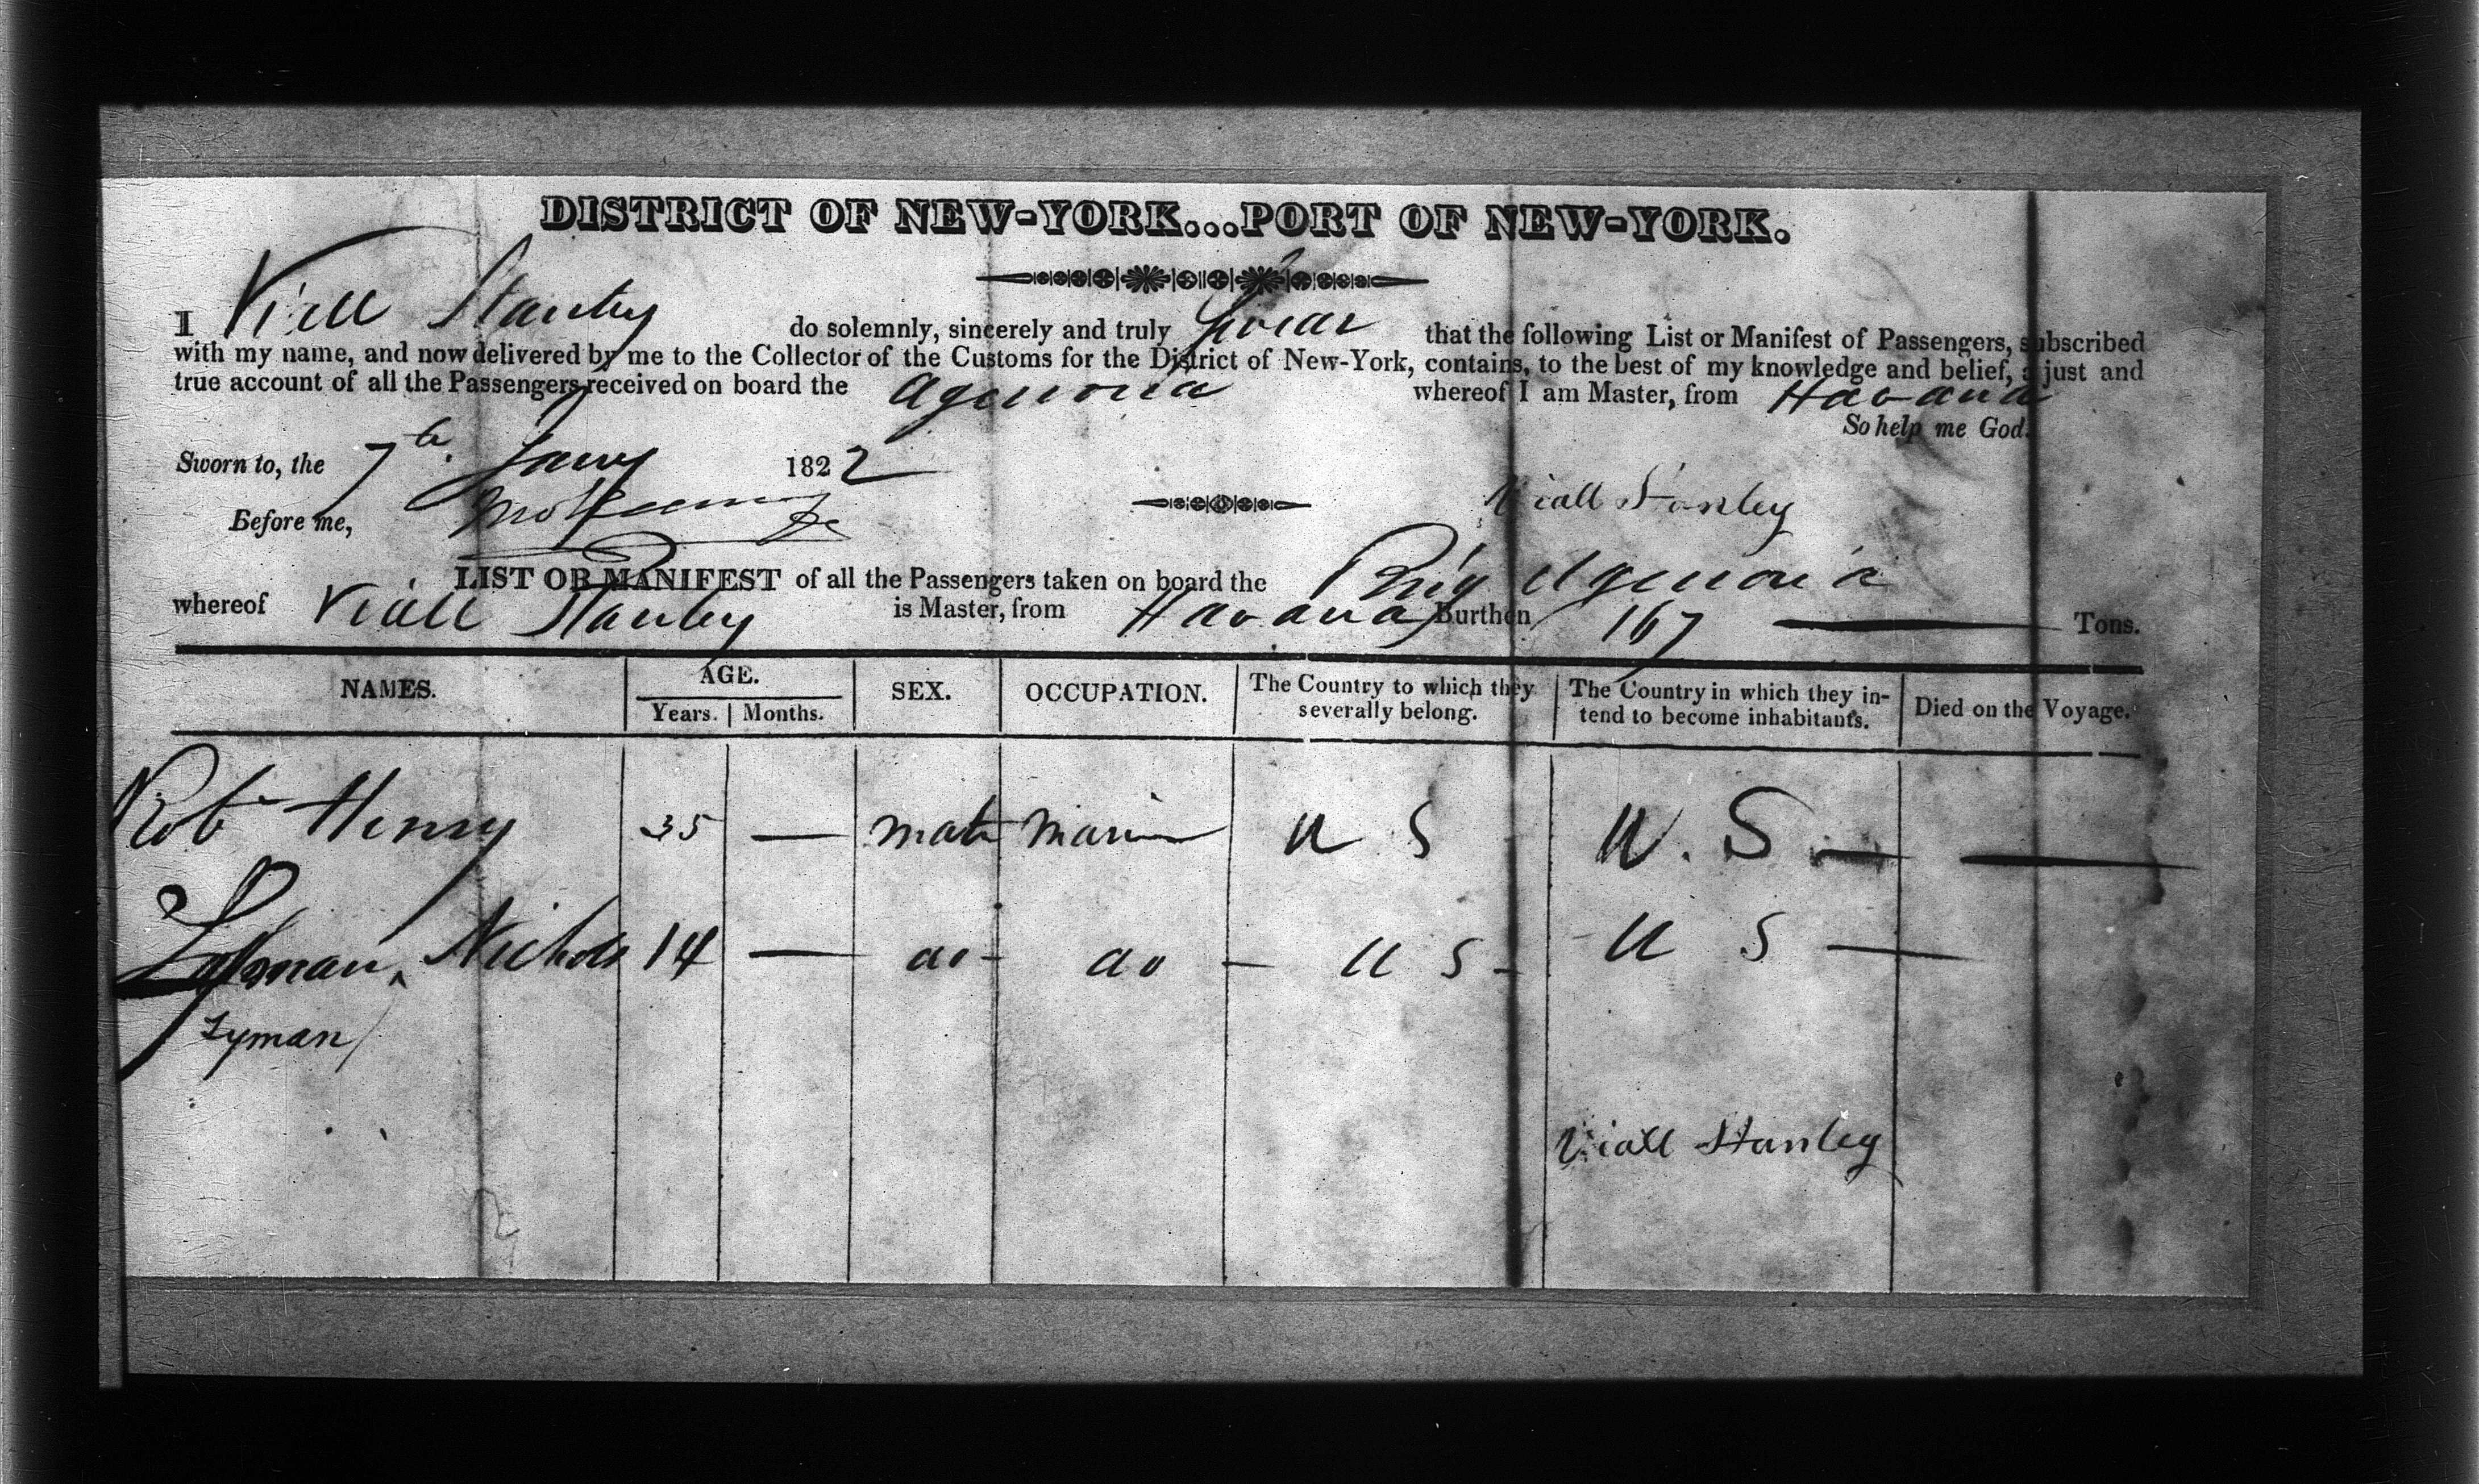 DISTRICT OF NEW-YORK...PORT OF NEW-YORK.
I Viall Stanley do solemnly, sincerely and truly swear that the following List or Manifest of Passengers, subscribed
with my name, and now delivered by me to the Collector of the Customs for the District of New-York, contains, to the best of my knowledge and belief, a just and
true account of all the Passengers received on board the Agenoria whereof I am Master, from Havana
So help me God.
Sworn to, the 7th Jany 1822
Before me,
Viall Stanley
LIST OR MANIFEST of all the Passengers taken on board the Brig Agenoria
whereof Viall Stanley is Master, from Havana Burthen 167 Tons.
NAMES. AGE. SEX. OCCUPATION. The Country to which they severally belong. The Country in which they intend to become inhabitants. Died on the Voyage.
Years. Months.
Robt Henry 35 — male U S U. S — —
Nichols 14 — do - do — U S - U S —
Lyman
Viall Stanley